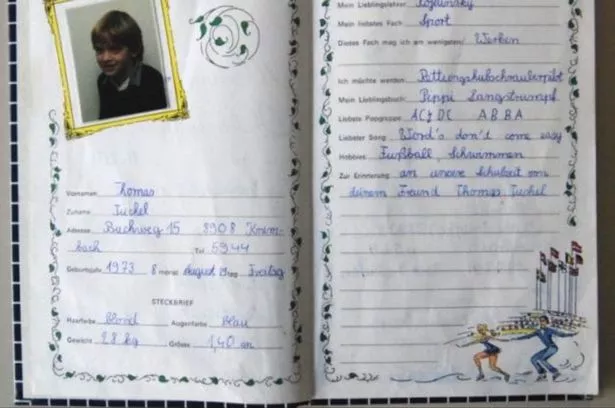 Vorname: Thomas
Zuname: Tuchel
Adresse: Buchweg 15 8908 Krum-
bach Tel. 5944
Geburtsjahr 1973 8 monat August 29 tag Freitag
STECKBRIEF
Haarfarbe Blond Augenfarbe Blau
Gewicht 28 kg Grösse 1,40 cm
Mein Lieblingslehrer
Mein liebstes Fach Sport
Dieses Fach mag ich am wenigsten: Werken
Ich möchte werden: Rettungshubschrauberpilot
Mein Lieblingsbuch: Peppi Langstrumpf
Liebste Popgruppe: AC/DC ABBA
Liebster Song: Word's don't come easy
Hobbies: Fußball, Schwimmen
Zur Erinnerung an unsere Schulzeit von
deinem Freund Thomas Tuchel